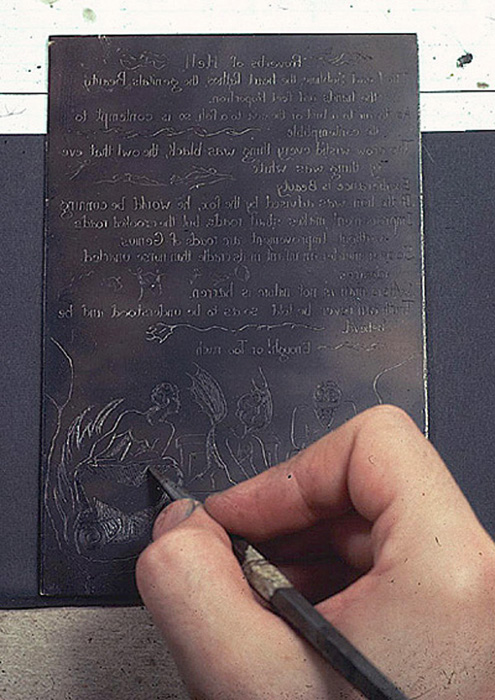 Proverbs of Hell
The head Sublime, the heart Pathos, the genitals Beauty
the hands and feet Proportion.
As the air to a bird or the sea to a fish, so is contempt to
the contemptible
The crow wish'd every thing was black, the owl that eve
ry thing was white
Exuberance is Beauty
If the lion was advised by the fox, he would be cunning
Improvement makes strait roads, but the crooked roads
without Improvement, are roads of Genius
Sooner murder an infant in its cradle than nurse unacted
desires
Where man is not nature is barren.
Truth can never be told so as to be understood and be
believ'd.
Enough! or Too much